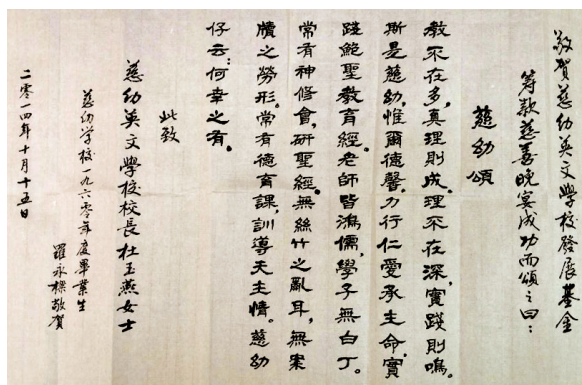 敬賀慈幼英文學校發展基金
籌款慈善晚宴成功而頌之曰：
慈幼頌
教不在多，真理則成。理不在深，實踐則鳴。
斯是慈幼，惟爾德馨。力行仁愛承生命，實
踐鮑聖教育經。老師皆鴻儒，學子無白丁。
常有神修會，研聖經。無絲竹之亂耳，無案
牘之勞形。常有德育課，訓導天主情。慈幼
仔云：何幸之有。
此致
慈幼英文學校校長杜玉燕女士
慈幼学校一九六零年度畢業生
羅永樑敬賀
二零一四年十月十五日